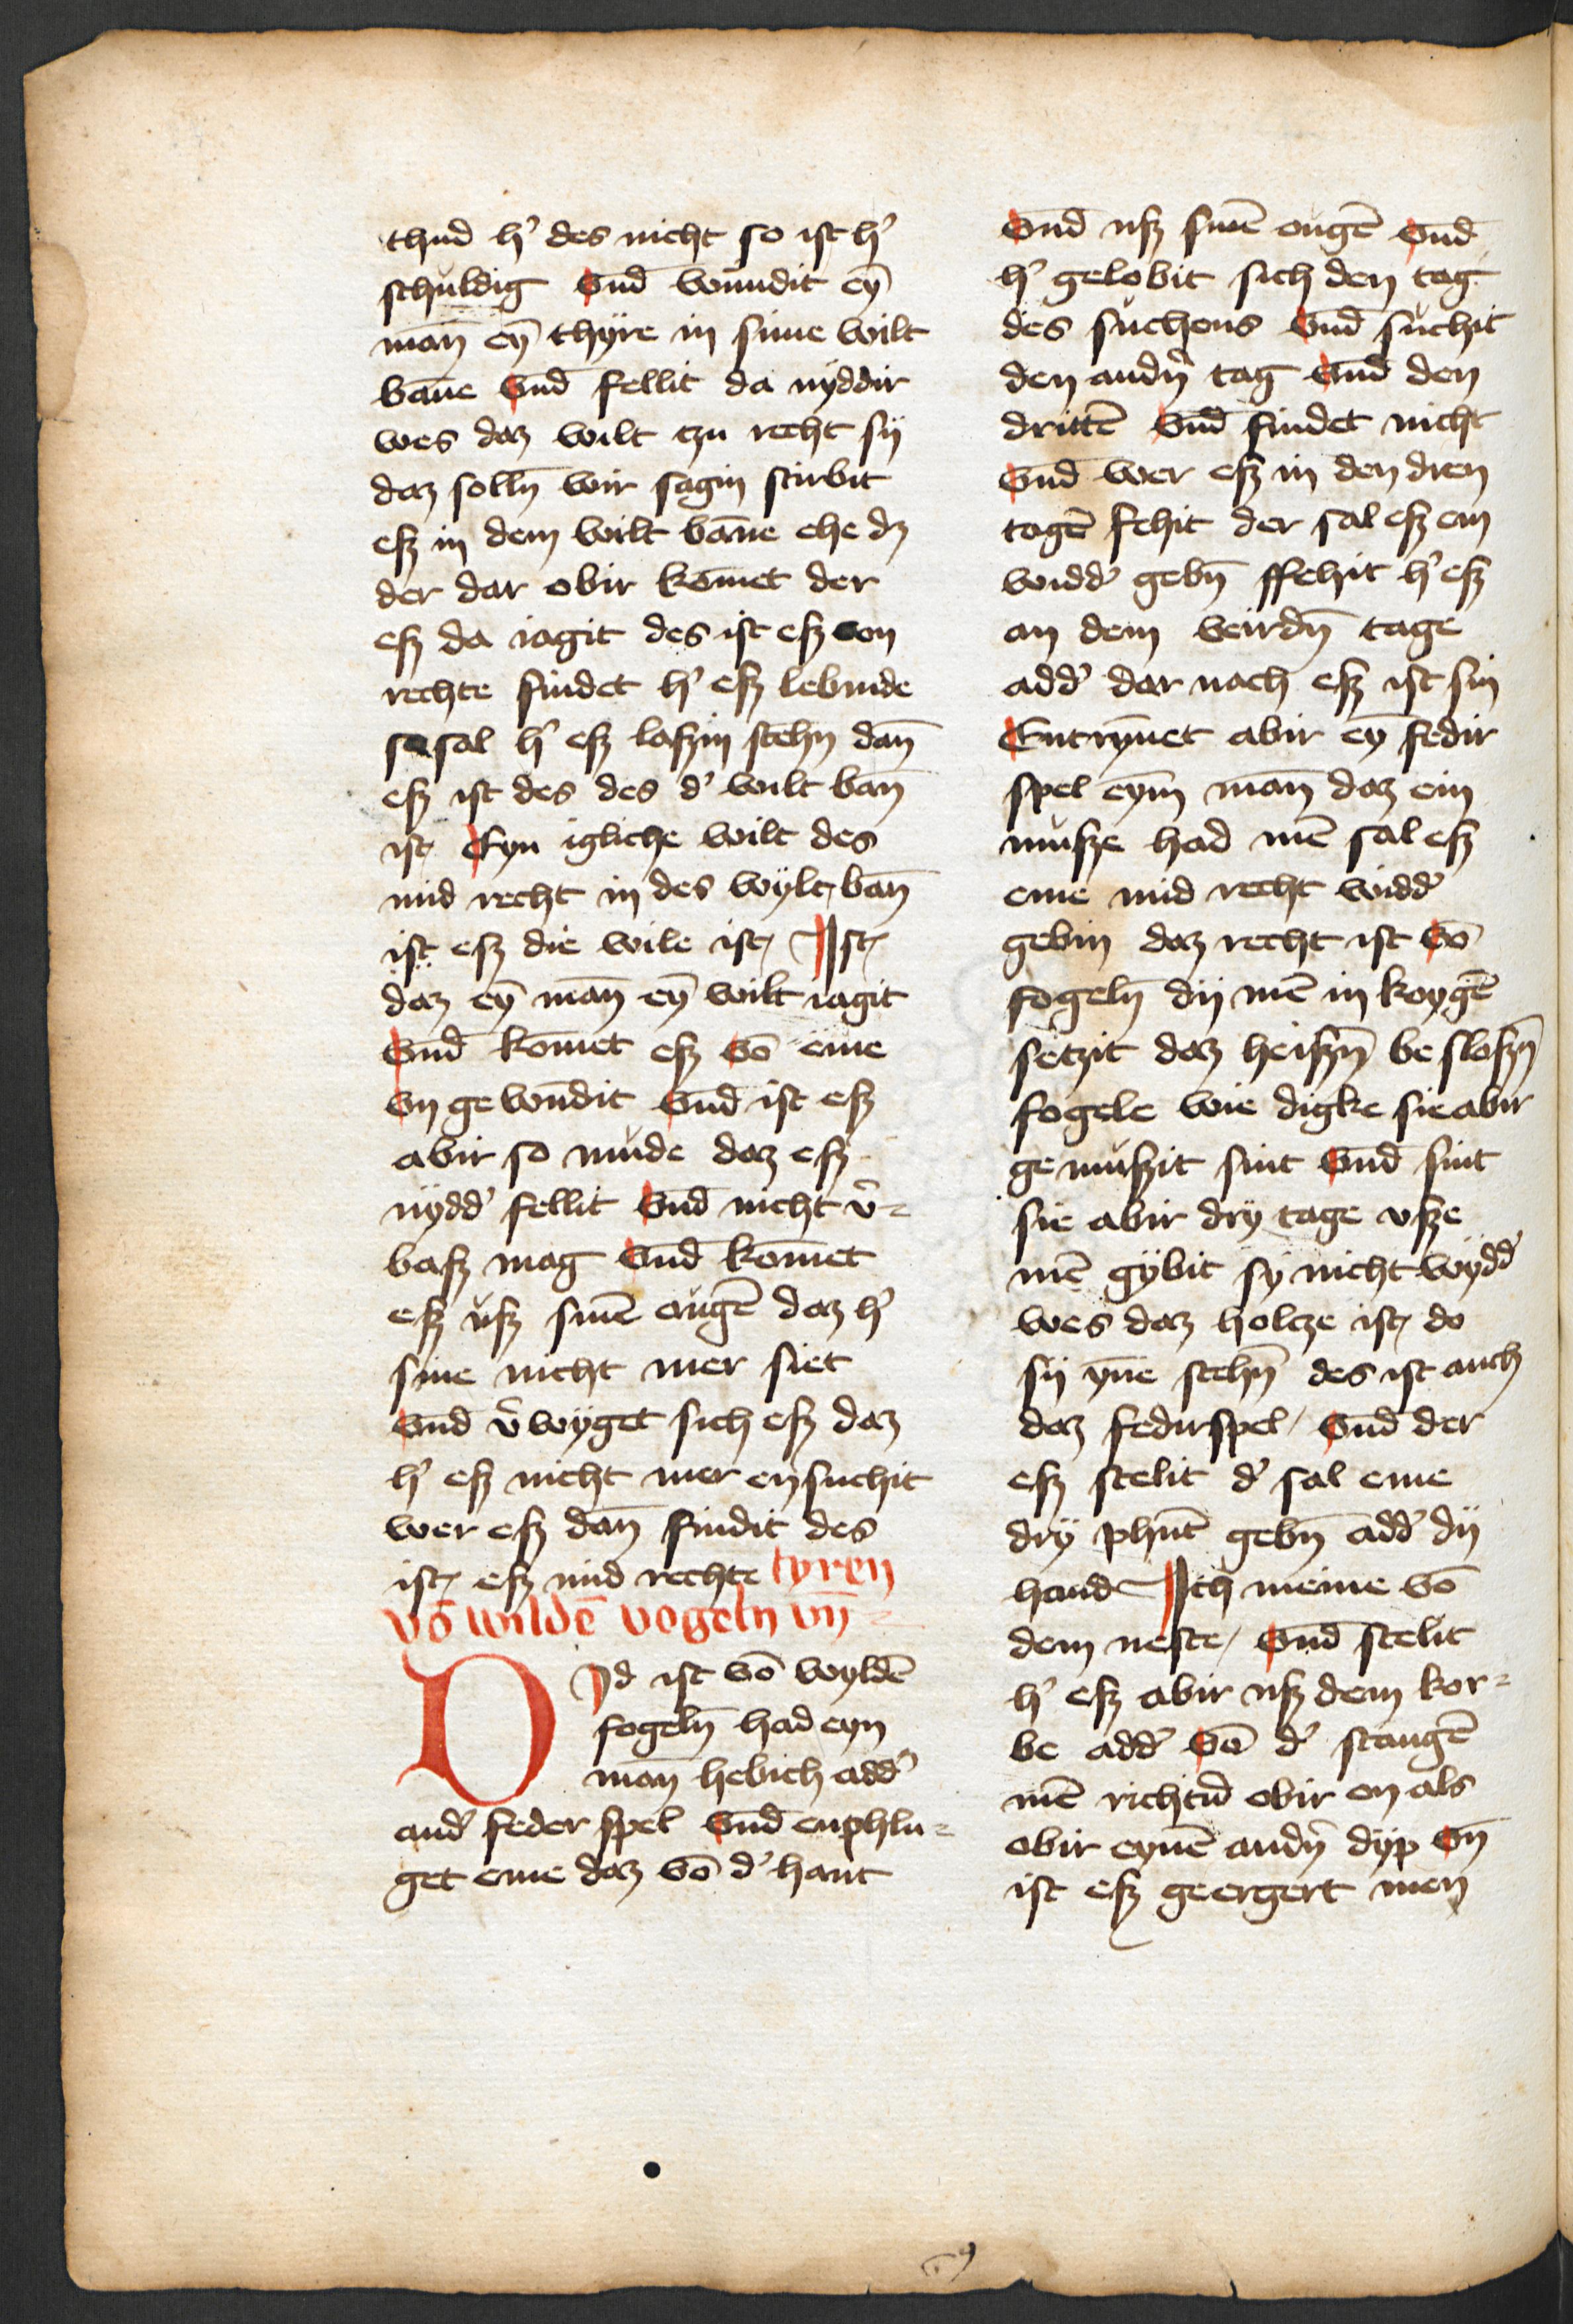 thud h' des nicht so ist h'
schuldig Vnd̄ wundit eȳ
man̄ eȳ thyre in sime wilt
bāne Vnd̄ fellit da nÿddir
wes daz wilt czu recht sÿ
daz solln̄ wir sagin stirbit
esz in dem wilt bāne ehe dz
der dar obir kōmet der
esz da iagit des ist esz von
rechte findet h' esz lebinde
so sal h' esz laszin stehn dan̄
esz ist des des d' wilt ban̄
ist Eyn igliche wilt des
mid recht in des wÿlt ban̄
ist esz die wile ist Ist
daz eȳ man̄ eȳ wilt iagit
Vnd̄ kōmet esz vō eme
Vn ge wūndit Vnd̄ ist esz
abir so mude daz esz
nÿdd' fellit Vnd̄ nicht v̄'=
basz mag Vnd̄ kōmet
esz usz sinē augē daz h'
sine nicht mer siet
Vnd̄ v'wÿget sich esz daz
h' esz nicht mer en suchit
wer esz dan̄ findit des
ist esz mid rechte tyren
vō wildē vogeln vn̄=
OJd ist vō wyldē
fogeln̄ had eyn
man̄ hebich add'
and' feder spel Vnd̄ enphlu=
get eme daz vō d' hant
Vnd̄ usz sinē ougē Vnd̄
h' gelobit sich den tag
des suchens Vnd̄ suchit
den andn̄ tag Vnd̄ den
drittē Vnd̄ findet nicht
Vnd̄ wer esz in den dren
tagē fehit der sal esz em
widd' gebn̄ ffehit h' esz
an dem veirdn̄ tage
add' dar nach esz ist sin
Entrȳnet abir eȳ fedir
spel eym̄ man̄ daz ein
musze had mē sal esz
eme mid recht widd'
gebin daz recht ist Vō
fogeln̄ dÿ mē in koygē
setzit daz heiszn̄ be sloszn̄
fogele wie digke sie abir
ge muszit sint Vnd̄ sint
sie abir drÿ tage vsze
mē gÿbit sÿ nicht wÿdd'
wes daz holcze ist do
sÿ ȳne stehn̄ des ist auch
daz fedirspel / Vnd̄ der
esz stelit d' sal eme
drÿ phūt gebn̄ add' dÿ
hand Ich meine vō
dem neste / Vnd̄ stelit
h' esz abir usz dem kor=
be add' vō d' stangē
mē richtid obir en als
obir eynē andn̄ dÿp Vn̄
ist esz geergert men